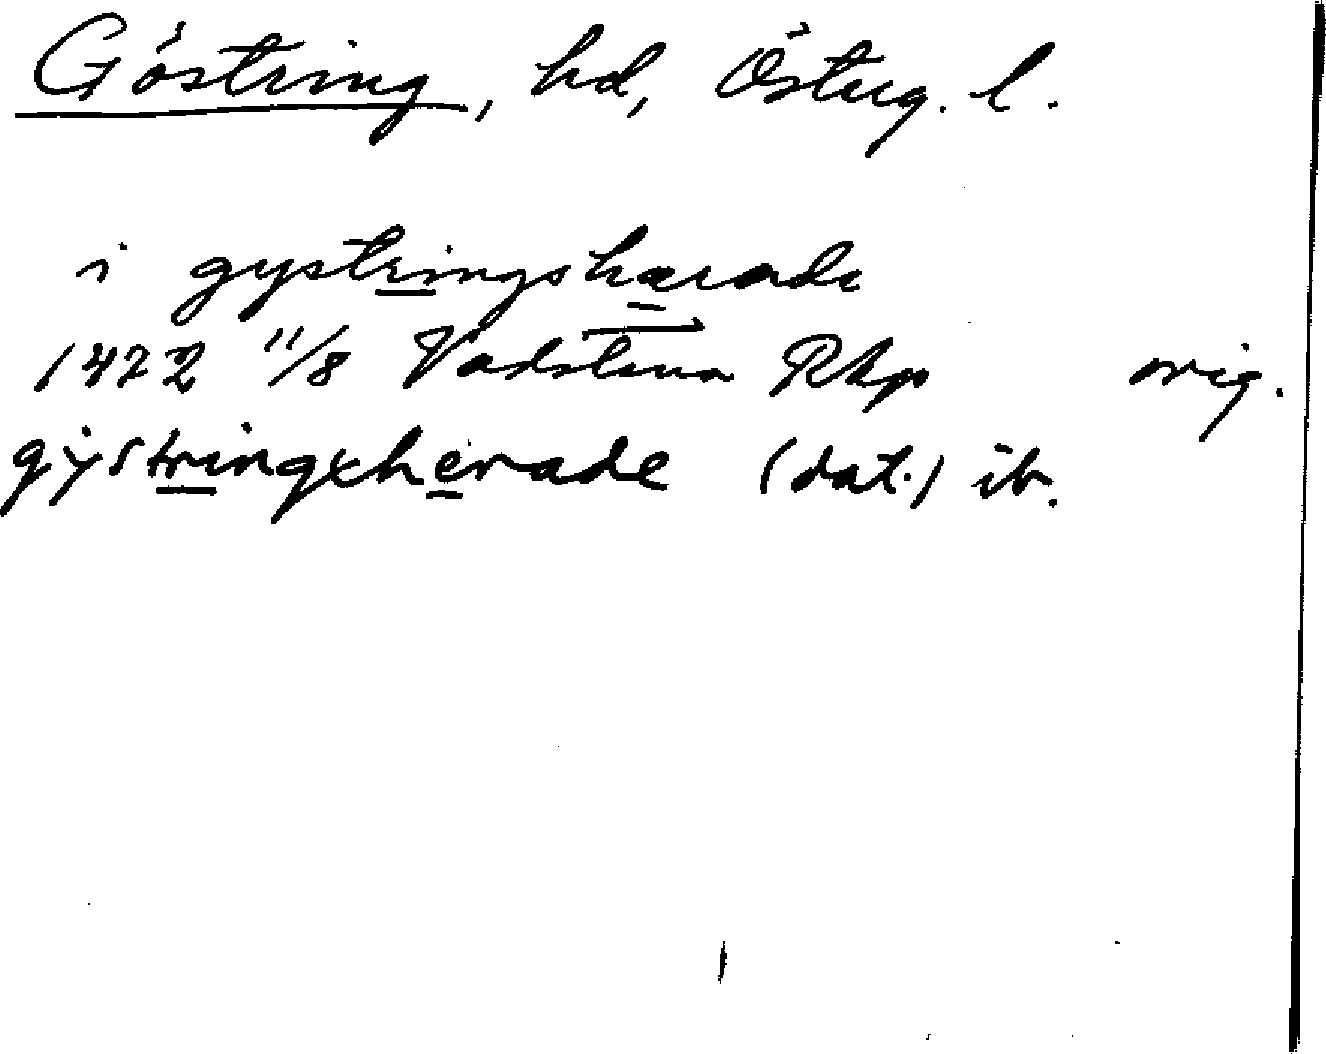 Göstring, hd, Österg. l.
i gystringshærade
1472 11/8 Vadstena Rkp orig.
gÿstringxherade (dat.) ib.